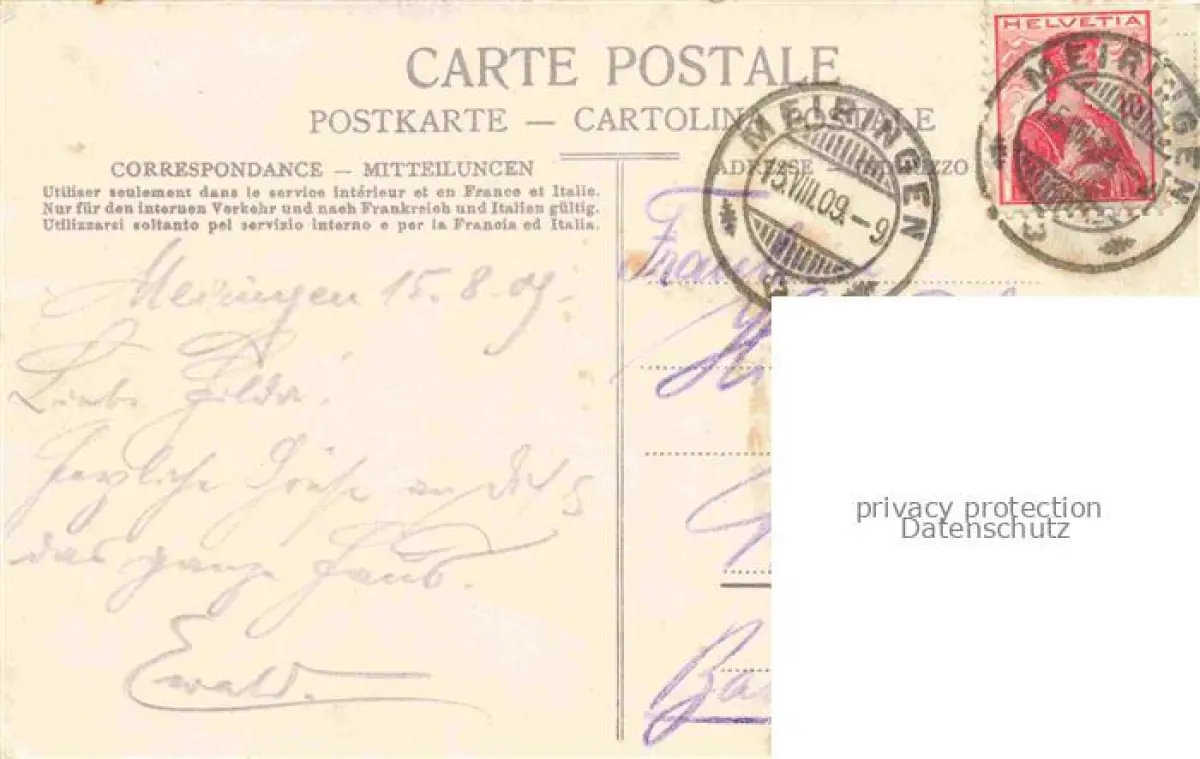 HELVETIA
CARTE POSTALE
POSTKARTE — CARTOLINA POSTALE
MEIRINGEN
15.VIII.09.-9
MEIRINGEN
3
CORRESPONDANCE – MITTEILUNGEN
Utiliser seulement dans le service intérieur et en France et Italie.
Nur für den internen Verkehr und nach Frankreich und Italien gültig.
Utilizzarsi soltanto pel servizio interno e per la Francia ed Italia.
ADRESSE
Meiringen 15.8.09.
Liebe Hilda.
Herzliche Grüße an Dich &
das ganze Haus.
Ewald.
Fräulein
privacy protection
Datenschutz